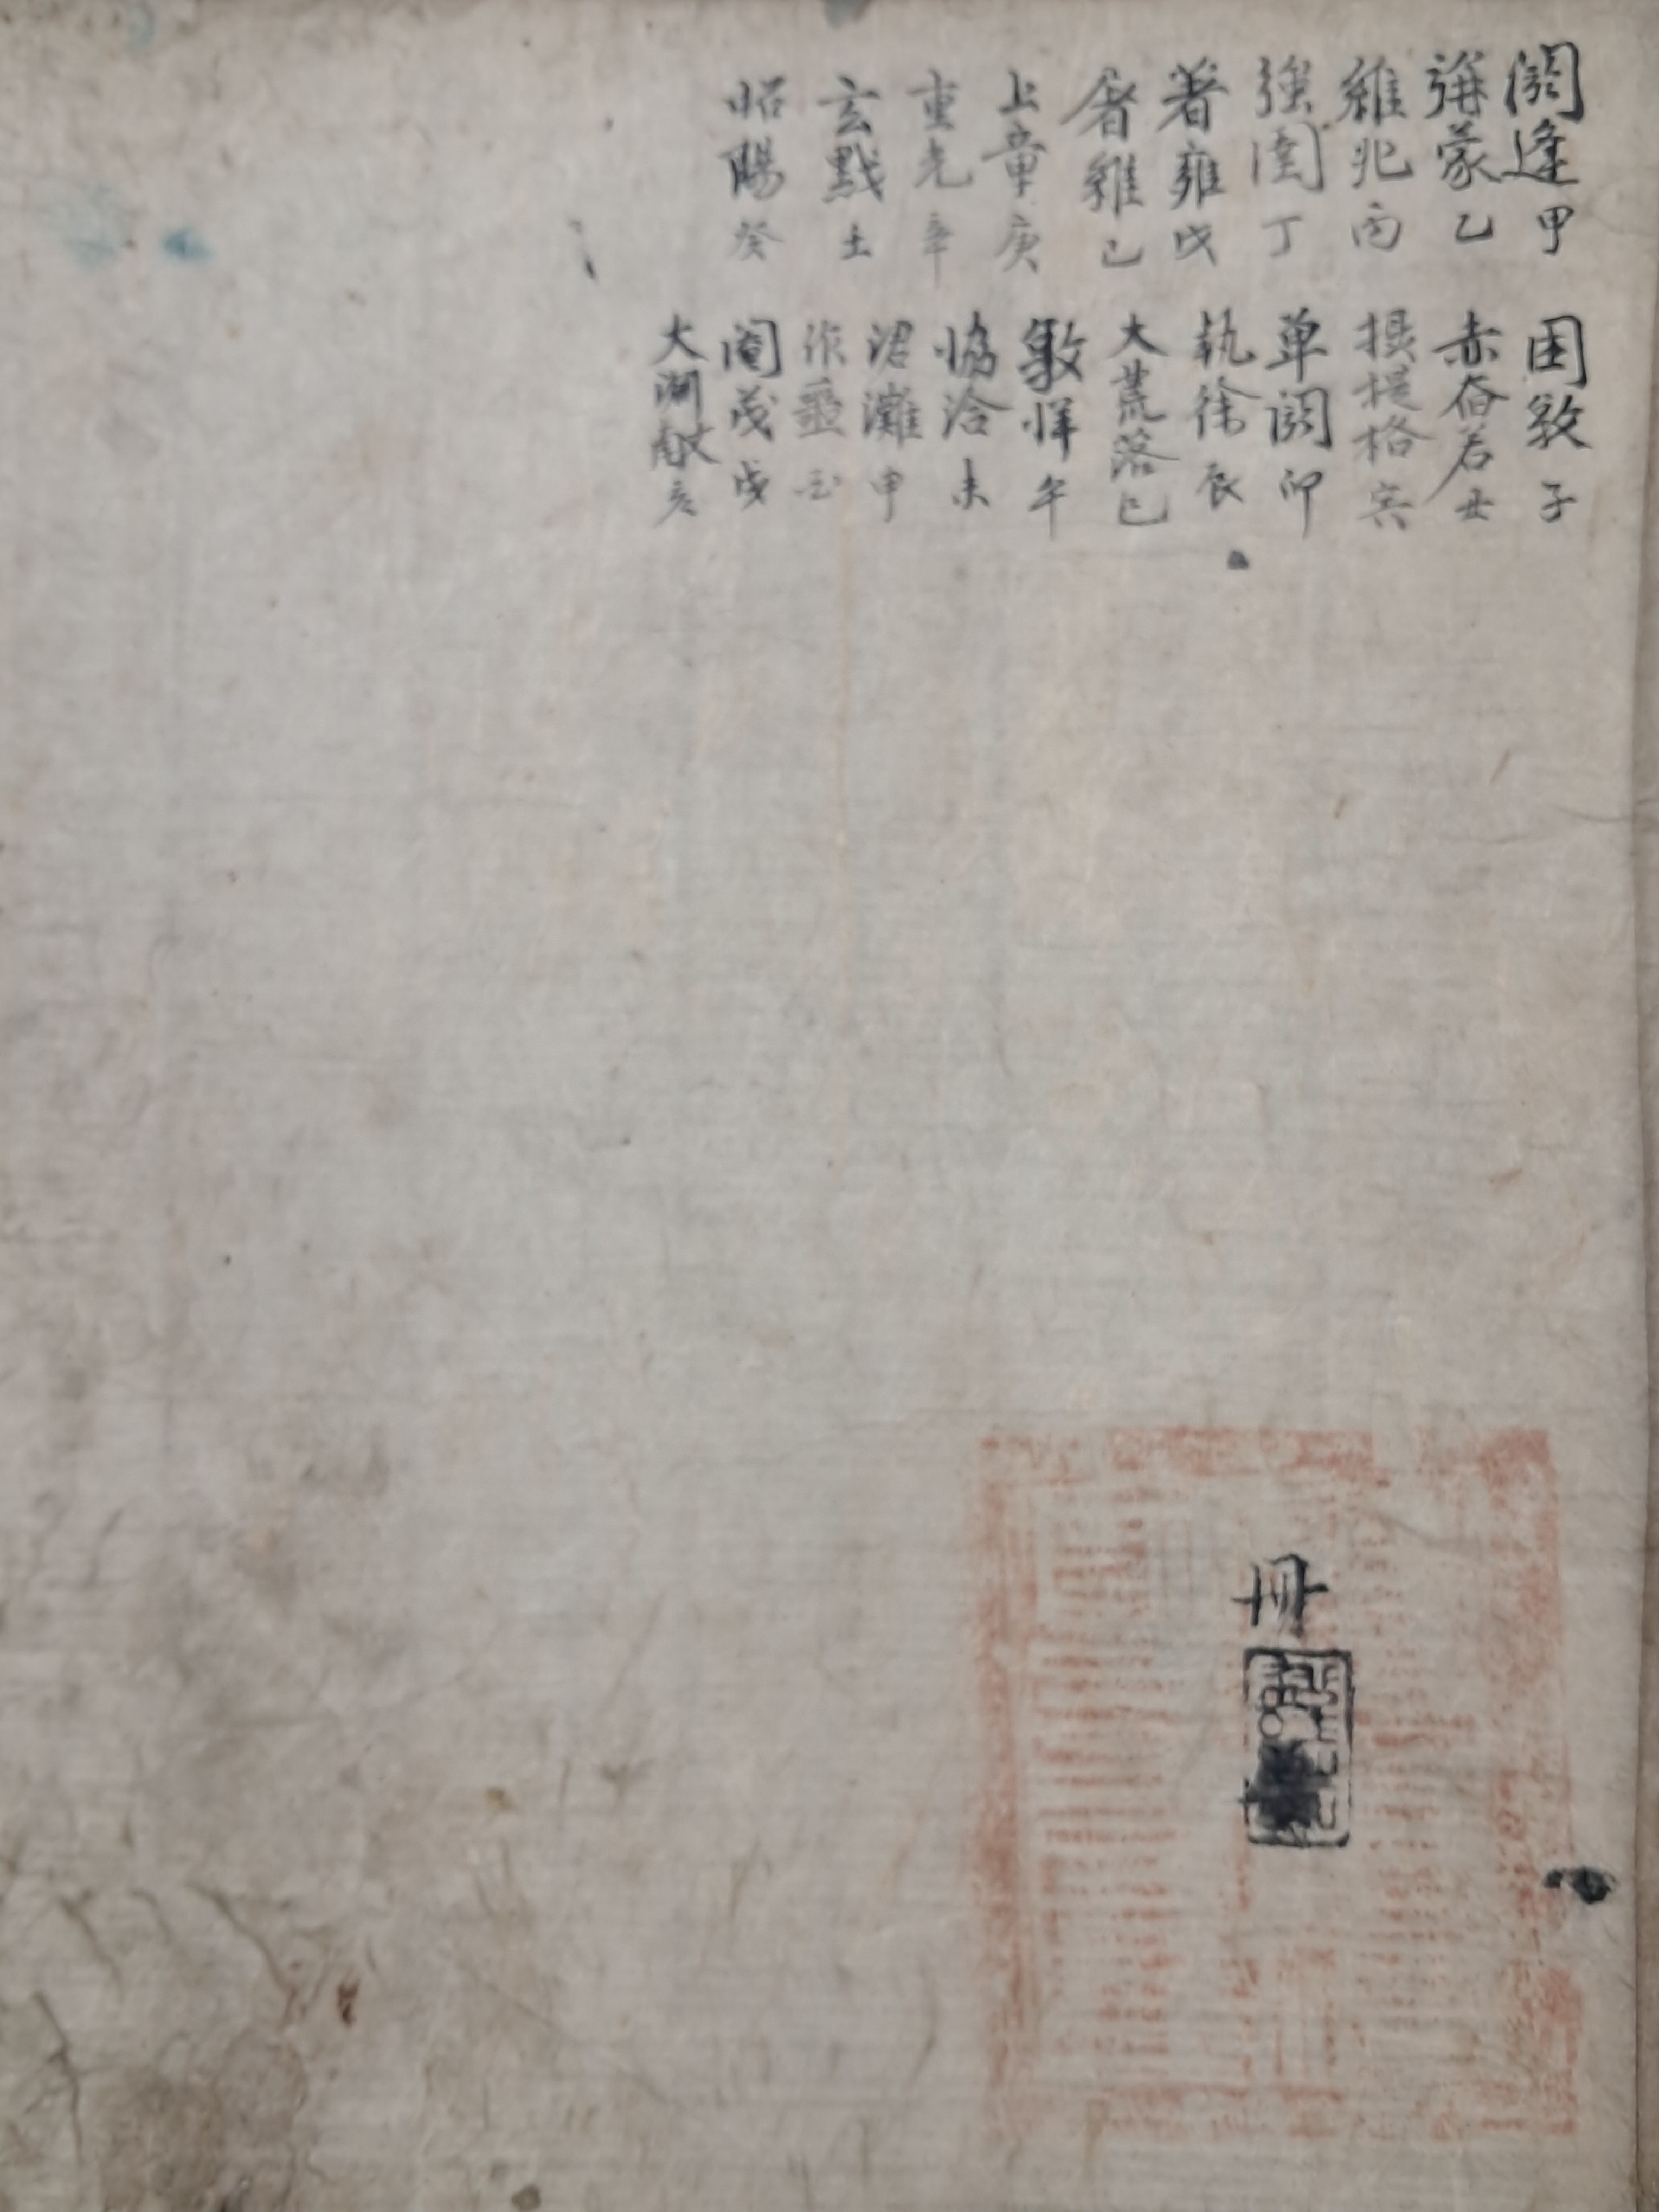 閼逢甲
旃蒙乙
維兆丙
強圉丁
著雍戊
屠維己
上章庚
重光辛
玄黓土
昭陽癸
困敦子
赤奮若丑
摂提格寅
單閼卯
執徐辰
大荒落巳
敦牂午
協洽未
涒灘申
作噩酉
閹茂戌
大淵献亥
冊